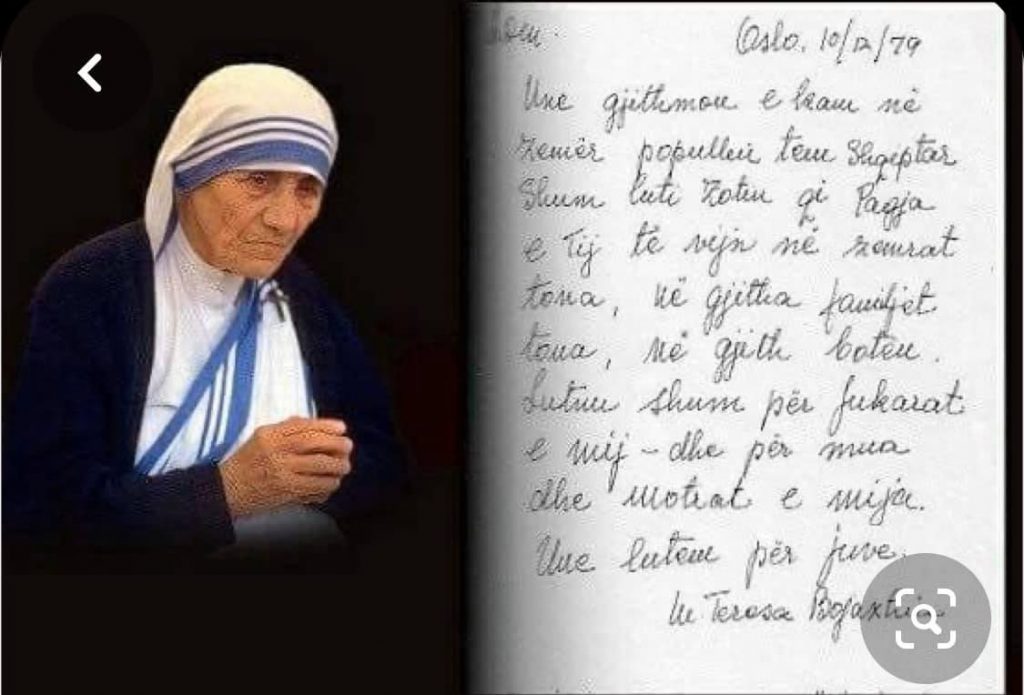 Oslo, 10/12/79
Une gjithmon e kam në
Zemër popullin tem Shqiptar
Shum luti Zotin qi Paqja
e Tij të vijn në zemrat
tona, në gjitha familjet
tona, në gjith boten.
Lutnu shum për fukarat
e mij - dhe për mua
dhe motrat e mija.
Une lutem për juve.
M. Teresa